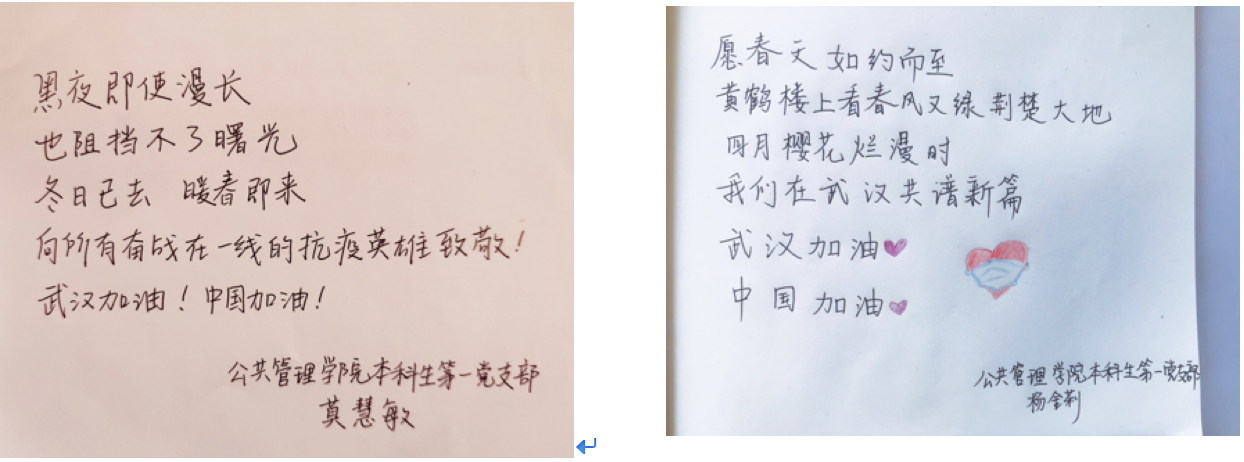 黑夜即使漫长
也阻挡不了曙光
冬日已去 暖春即来
向所有奋战在一线的抗疫英雄致敬！
武汉加油！中国加油！
公共管理学院本科生第一党支部
莫慧敏
愿春天如约而至
黄鹤楼上看春风又绿荆楚大地
四月樱花烂漫时
我们在武汉共谱新篇
武汉加油
中国加油
公共管理学院本科生第一党支部
杨金莉